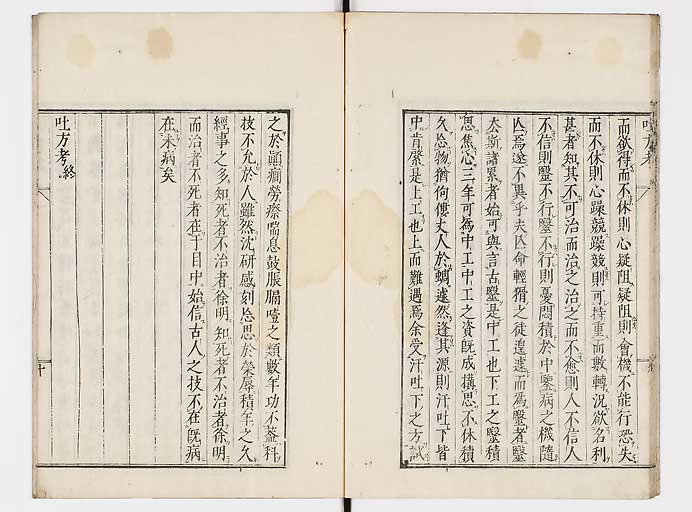 而欲得而不休則心疑阻疑阻則會機不能行恐失
而不休則心躁競躁競則可持重而數轉況欲名利
甚者知其不可治而治之治之而不愈則人不信人
不信則毉不行毉不行則憂悶積於中毉病之機隨
亾焉遂不異乎夫亾命輕猾之徒遑遽而爲毉者毉
亦斯諸累者始可與言古毉是中工也下工之毉積
思焦心三年可爲中工中工之資旣成搆思不休積
久忩物猶佝僂丈人於蜩遽然逢其源則汗吐下皆
中肯綮是上工也上而難遇焉余受汗吐下之方試
之於顚癇勞瘵喘息鼓脹膈噎之類數年功不葢科
技不允於人雖然沈研感刻忩思於榮辱積年之久
經事之多知死者不治者徐明知死者不治者徐明
而治者不死者在于目中始信古人之技不在旣病
在未病矣
吐方考終
吐方考
十